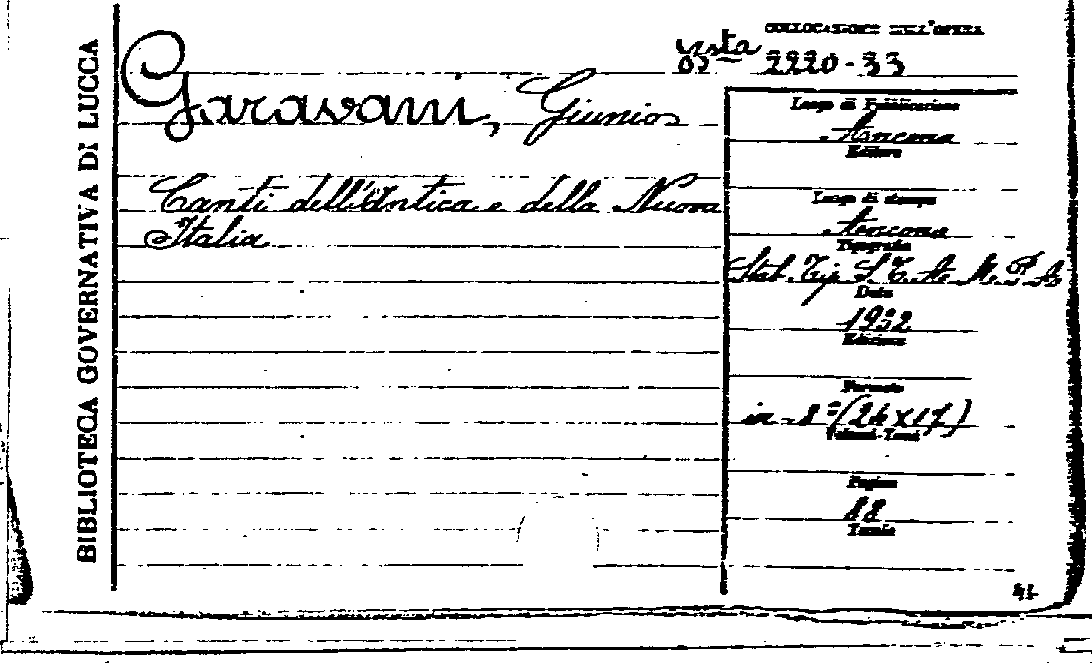 BIBLIOTECA GOVERNATIVA DI LUCCA
COLLOCAZIONE DELL'OPERA
Bsta 2220-33
Garavani, Giunio
Canti dell'Antica e della Nuova
Italia
Luogo di Pubblicazione
Ancona
Editore
Luogo di stampa
Ancona
Tipografia
Stab. Tip. S.T.A.M.P.A
Data
1932
Edizione
Formato
in-8°(24x17)
Volumi-Tomi
Pagine
88
Tavole